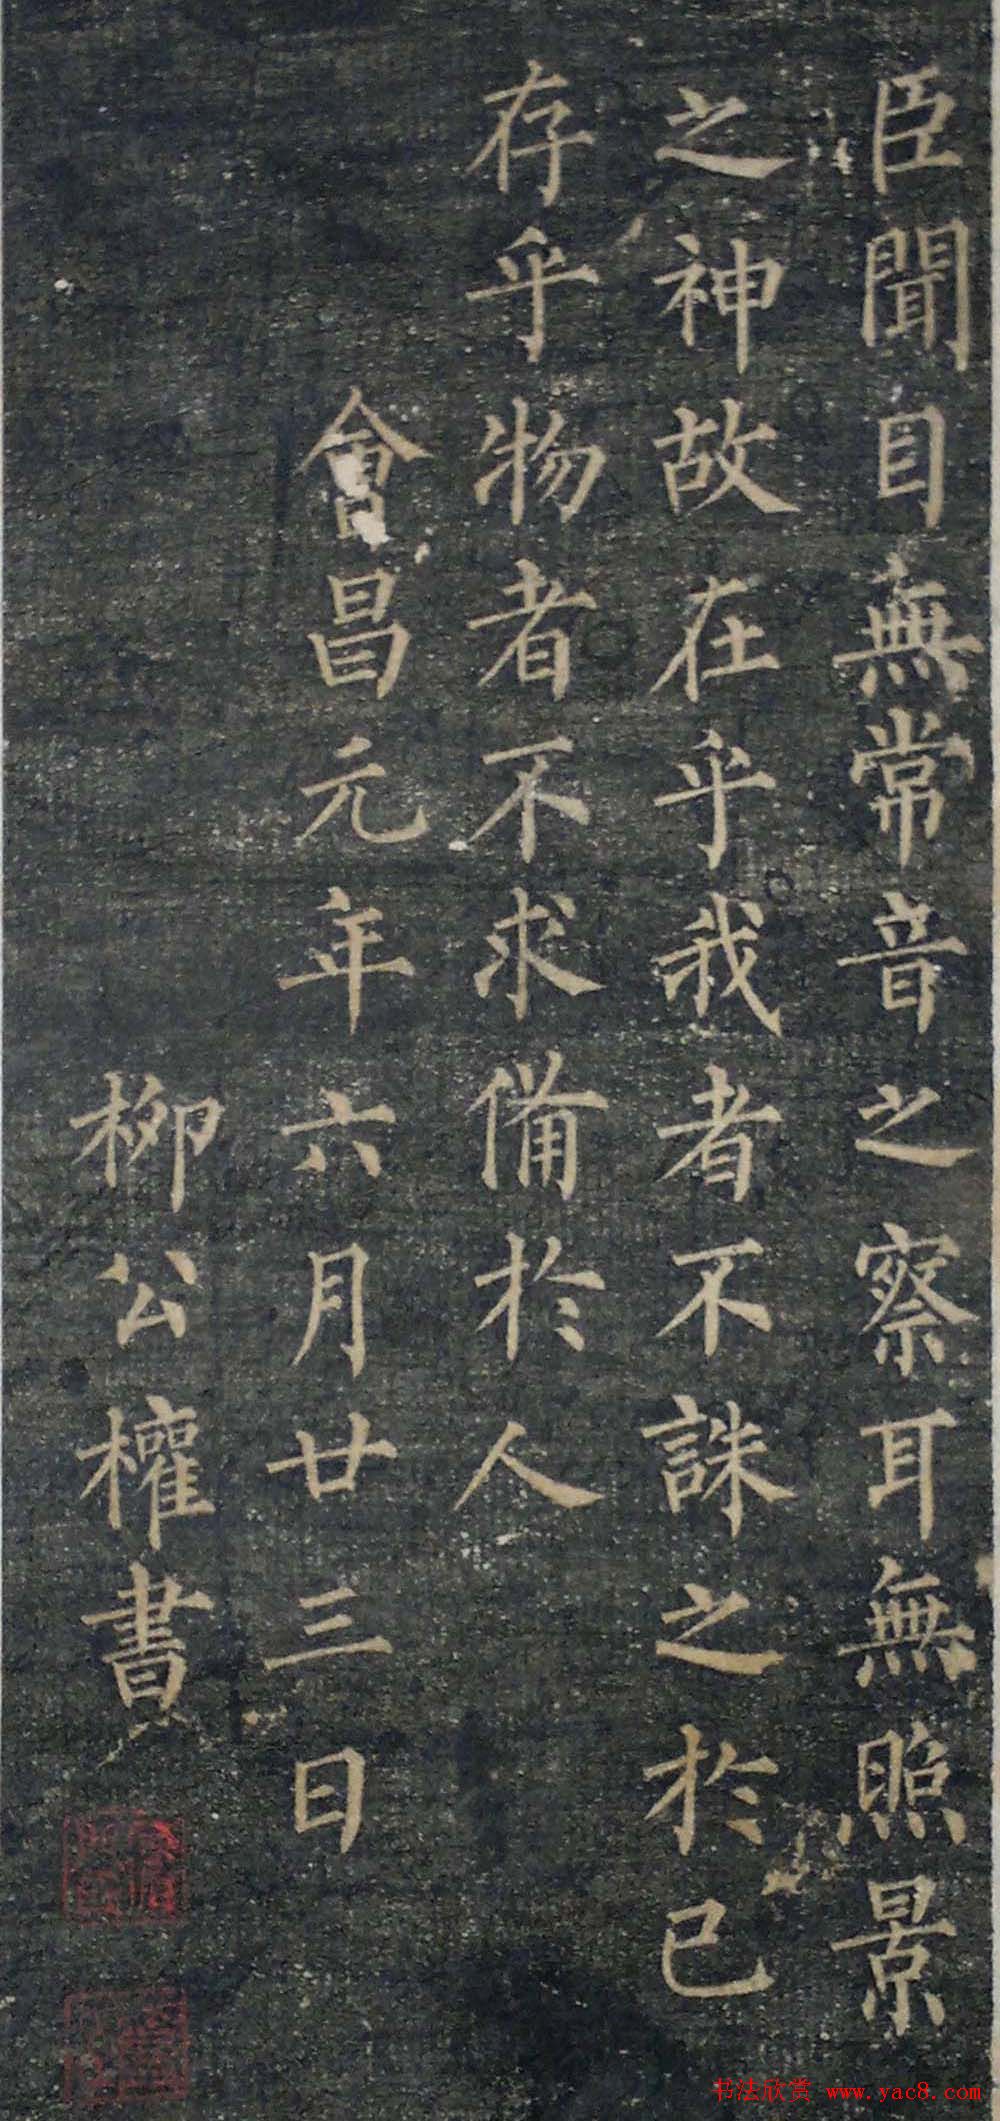 臣聞目無常音之察耳無照景
之神故在乎我者不誅之於己
存乎物者不求備於人
會昌元年六月廿三日
柳公權書
书法欣赏 www.yac8.com